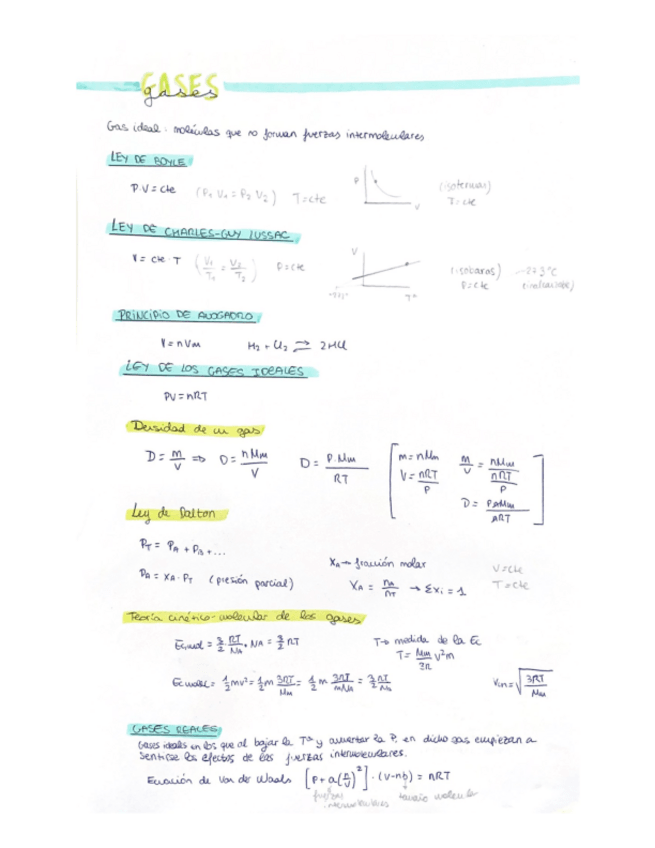 GASES
gases
Gas ideal: moléculas que no forman fuerzas intermoleculares
LEY DE BOYLE
P·V = cte (P₁ V₁ = P₂ V₂) T = cte
P
V
(isotermas)
T = cte
LEY DE CHARLES-GUY LUSSAC
V = cte · T (V₁/T₁ = V₂/T₂) P = cte
V
T
(isobaras) -273°C
P = cte
PRINCIPIO DE AVOGADRO
V = nVm H₂ + Cl₂ ⇌ 2HCl
LEY DE LOS GASES IDEALES
PV = nRT
Densidad de un gas
D = m/V ⇒ D = nMm/V D = P·Mm/RT
m = nMm
V = nRT/P
m/V = nMm/(nRT/P)
Ley de Dalton
P_T = P_A + P_B + ...
P_A = X_A · P_T (presión parcial)
X_A → fracción molar
X_A = n_A/n_T → Σxi = 1
V = cte
T = cte
Teoría cinético-molecular de los gases
Ec mol = 3/2 RT/NA · NA = 3/2 RT
T → medida de la Ec
T = Mm/3R v²m
Ec molec = 1/2 mv² = 1/2 m 3RT/Mm = 1/2 m 3RT/mNA = 3/2 RT/NA
= √(3RT/Mm)
GASES REALES
Gases ideales en los que al bajar la Tª y aumentar la P, en dicho gas empiezan a
sentirse los efectos de las fuerzas intermoleculares.
Ecuación de Van der Waals [P + a(n/V)²] · (V-nb) = nRT
fuerzas
intermoleculares
tamaño molecular